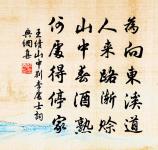 為向東溪道
人來路漸賒
山中春酒熟
何處得停家
王績山中別李處士詞